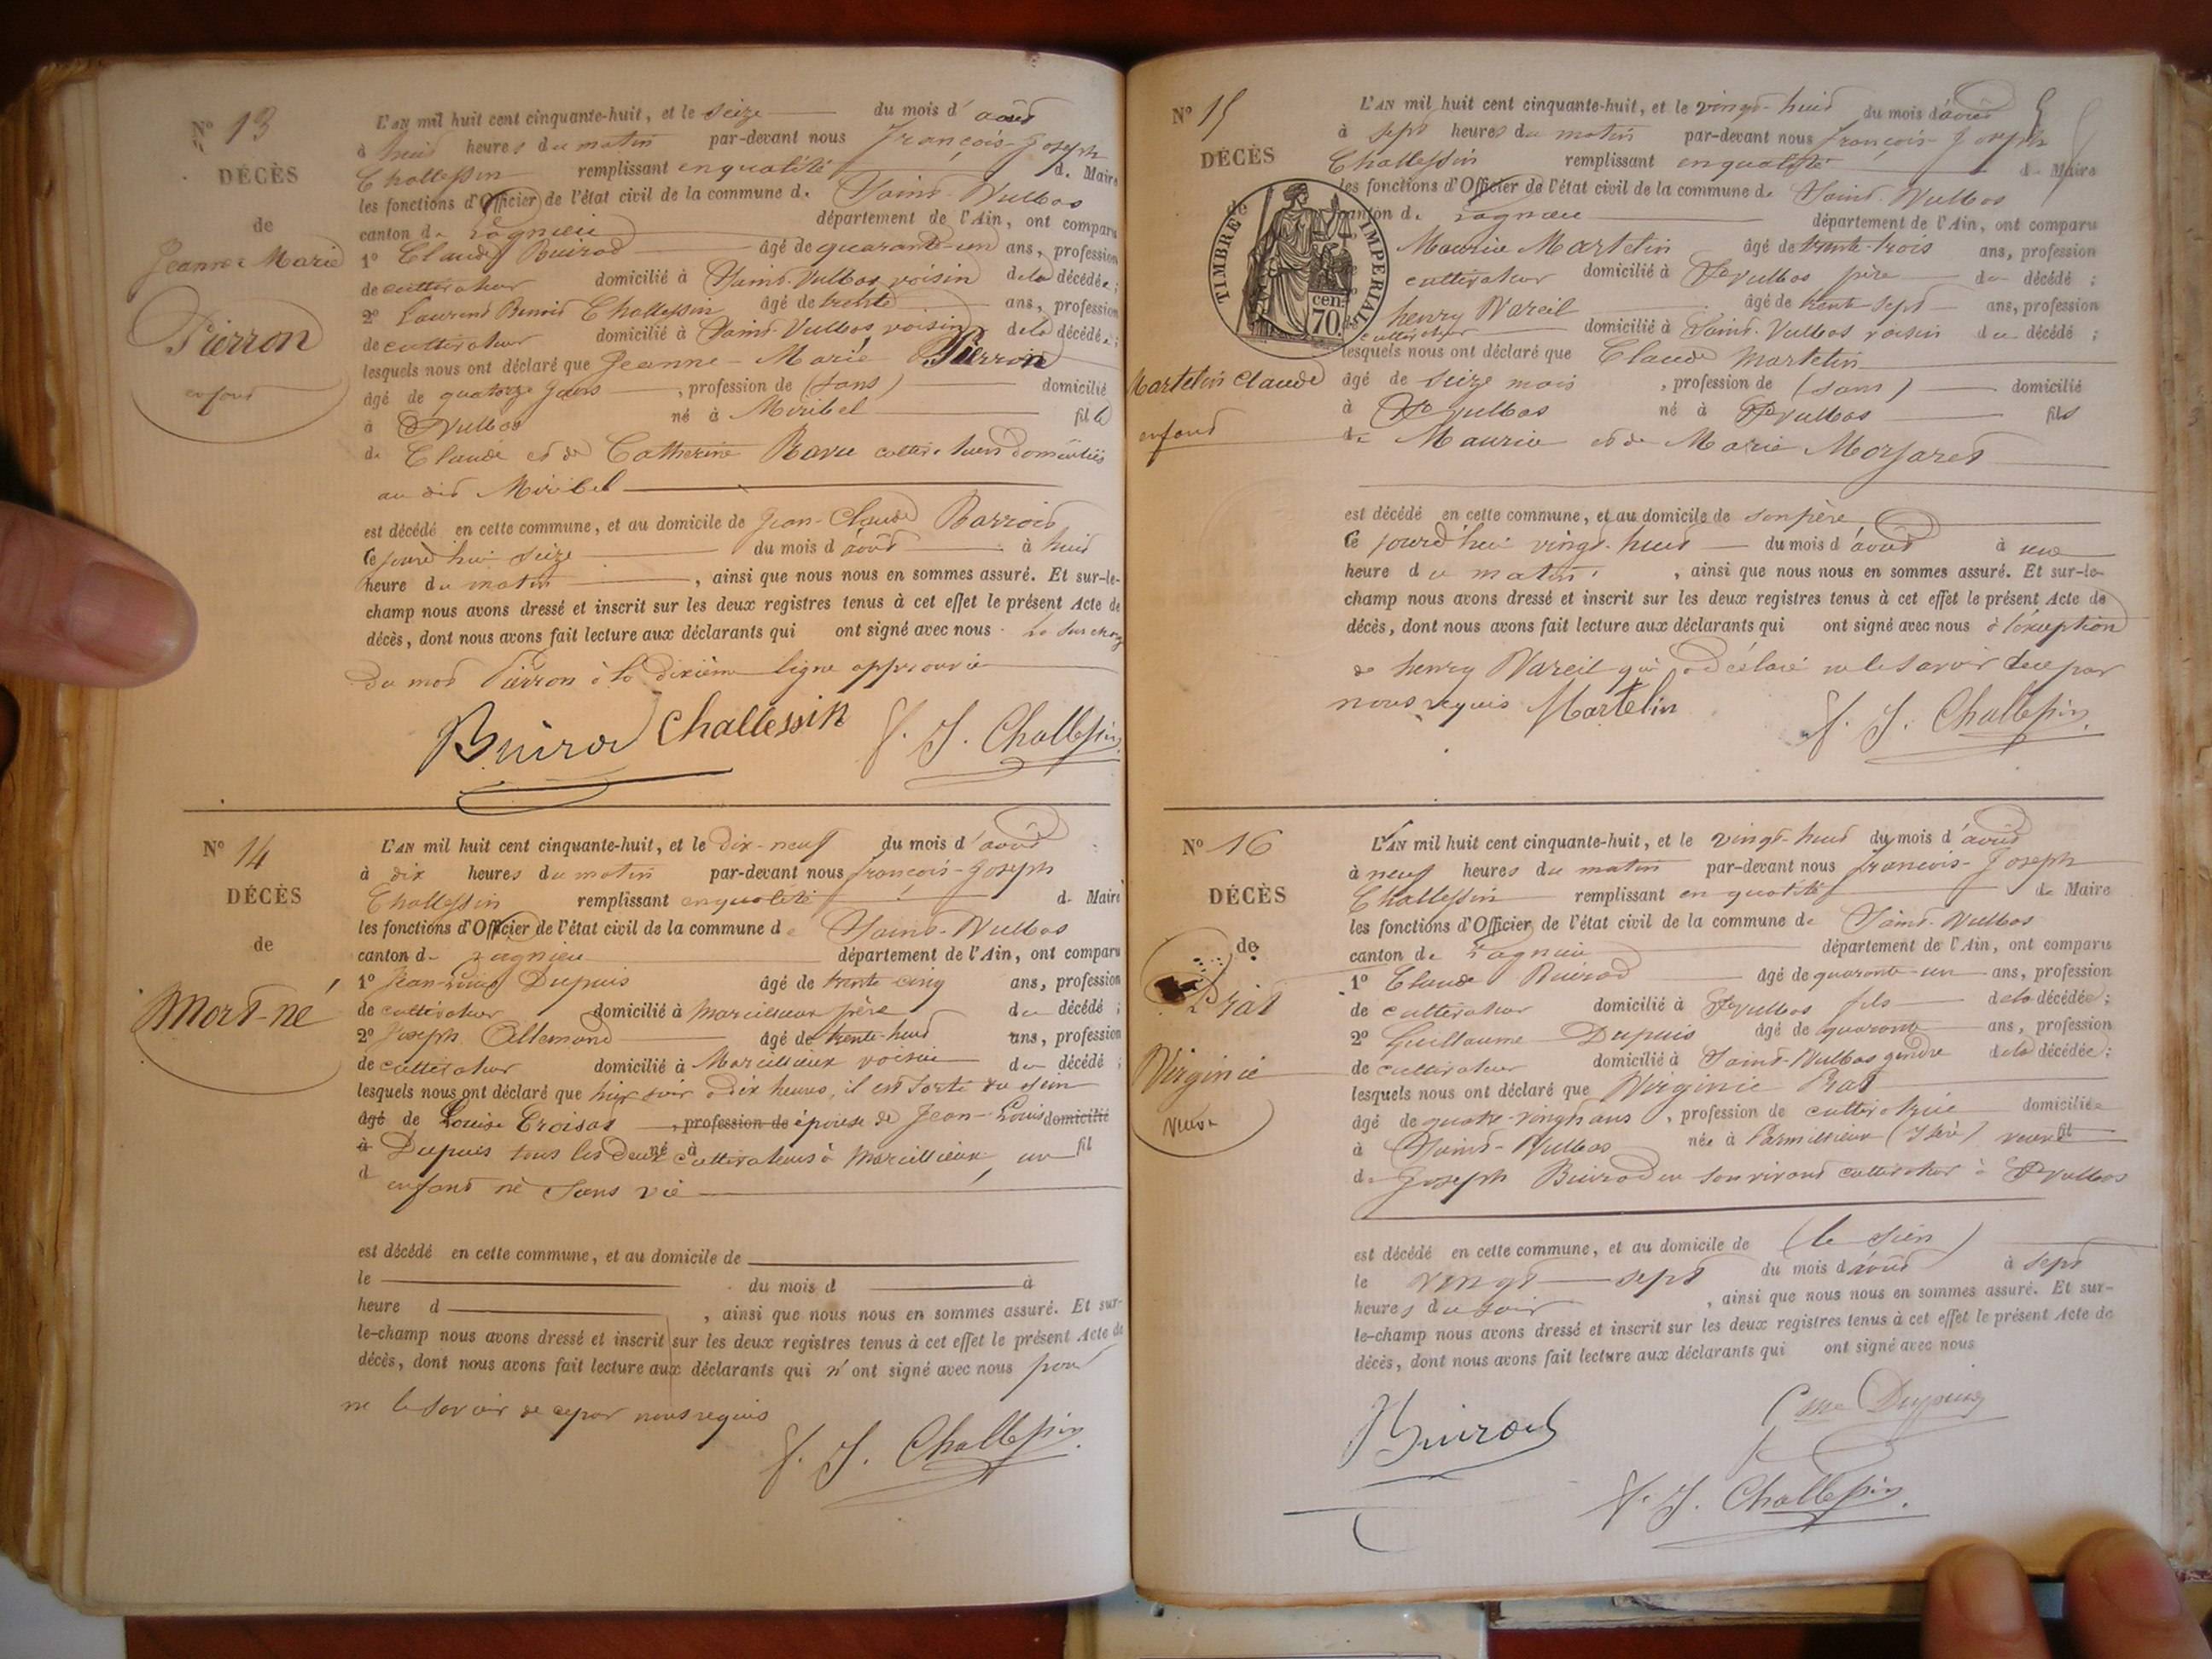 N° 13
DÉCÈS
de
Jeanne Marie
Pierron
enfant
L'AN mil huit cent cinquante-huit, et le seize du mois d'août
à huit heures du matin par-devant nous françois-Joseph
Challessin remplissant en qualité de Maire
les fonctions d'Officier de l'état civil de la commune de Saint-Vulbas
canton de Lagnieu département de l'Ain, ont comparu
1° Claude Buirod âgé de quarante-un ans, profession
de cultivateur domicilié à Saint-Vulbas voisin de la décédée;
2° Laurent Benoit Challessin âgé de trente ans, profession
de cultivateur domicilié à Saint-Vulbas voisin de la décédée;
lesquels nous ont déclaré que Jeanne-Marie Pierron
âgé de quatorze jours, profession de (sans) domicilié
à St Vulbas né à Miribel fille
de Claude et de Catherine Ravu cultivateurs domiciliés
au dit Miribel
est décédé en cette commune, et au domicile de Jean-Claude Barrois
le jourd'hui seize du mois d'août à huit
heure du matin, ainsi que nous nous en sommes assuré. Et sur-le-
champ nous avons dressé et inscrit sur les deux registres tenus à cet effet le présent Acte de
décès, dont nous avons fait lecture aux déclarants qui ont signé avec nous. la surcharge
du mot Pierron à la dixième ligne approuvée
Buirod Challessin f. J. Challessin
N° 14
DÉCÈS
de
Mort-né
L'AN mil huit cent cinquante-huit, et le dix-neuf du mois d'août
à dix heures du matin par-devant nous françois-Joseph
Challessin remplissant en qualité de Maire
les fonctions d'Officier de l'état civil de la commune de Saint-Vulbas
canton de Lagnieu département de l'Ain, ont comparu
1° Jean-Louis Dupuis âgé de trente cinq ans, profession
de cultivateur domicilié à Marcilleux père du décédé;
2° Joseph Allemand âgé de trente-huit ans, profession
de cultivateur domicilié à Marcillieux voisin du décédé;
lesquels nous ont déclaré que hier soir à dix heures, il est sorti du sein
âgé de Louise Croisat, profession de épouse de Jean-Louis domicilié
à Dupuis tous les deux né à cultivateurs à Marcillieux, un fil
d enfant né sans vie
est décédé en cette commune, et au domicile de
le du mois d à
heure d, ainsi que nous nous en sommes assuré. Et sur-
le-champ nous avons dressé et inscrit sur les deux registres tenus à cet effet le présent Acte de
décès, dont nous avons fait lecture aux déclarants qui n'ont signé avec nous pour
ne le savoir de ce par nous requis
f. J. Challessin
N° 15
DÉCÈS
de
TIMBRE IMPERIAL
cen. 70.
Martelin Claude
enfant
L'AN mil huit cent cinquante-huit, et le vingt-huit du mois d'août
à sept heures du matin par-devant nous françois-Joseph
Challessin remplissant en qualité de Maire
les fonctions d'Officier de l'état civil de la commune de Saint-Vulbas
canton de Lagnieu département de l'Ain, ont comparu
Maurice Martelin âgé de trente-trois ans, profession
cultivateur domicilié à St Vulbas père du décédé;
henry Vareil âgé de trente-sept ans, profession
cultivateur domicilié à Saint-Vulbas voisin du décédé;
lesquels nous ont déclaré que Claude Martelin
âgé de seize mois, profession de (sans) domicilié
à St Vulbas né à St Vulbas fils
de Maurice et de Marie Morsaret
est décédé en cette commune, et au domicile de son père
le jourd'hui vingt-huit du mois d'août à une
heure du matin, ainsi que nous nous en sommes assuré. Et sur-le-
champ nous avons dressé et inscrit sur les deux registres tenus à cet effet le présent Acte de
décès, dont nous avons fait lecture aux déclarants qui ont signé avec nous à l'exception
de henry Vareil qui a déclaré ne le savoir de ce par
nous requis Martelin f. J. Challessin
N° 16
DÉCÈS
de
Prat
Virginie
veuve
L'AN mil huit cent cinquante-huit, et le vingt-huit du mois d'août
à neuf heures du matin par-devant nous francois-Joseph
Challessin remplissant en qualité de Maire
les fonctions d'Officier de l'état civil de la commune de Saint-Vulbas
canton de Lagnieu département de l'Ain, ont comparu
1° Claude Buirod âgé de quarante-un ans, profession
de cultivateur domicilié à St Vulbas fils de la décédée;
2° Guillaume Dupuis âgé de quarante ans, profession
de cultivateur domicilié à Saint-Vulbas gendre de la décédée;
lesquels nous ont déclaré que Virginie Prat
âgé de quatre-vingts ans, profession de cultivatrice domiciliée
à Saint-Vulbas née à Parmillieux (Isère) veuve fil
de Joseph Buirod en son vivant cultivateur à St Vulbas
est décédé en cette commune, et au domicile de (le sien)
le vingt-sept du mois d'août à sept
heures du soir, ainsi que nous nous en sommes assuré. Et sur-
le-champ nous avons dressé et inscrit sur les deux registres tenus à cet effet le présent Acte de
décès, dont nous avons fait lecture aux déclarants qui ont signé avec nous
Buirod Dupuis
f. J. Challessin